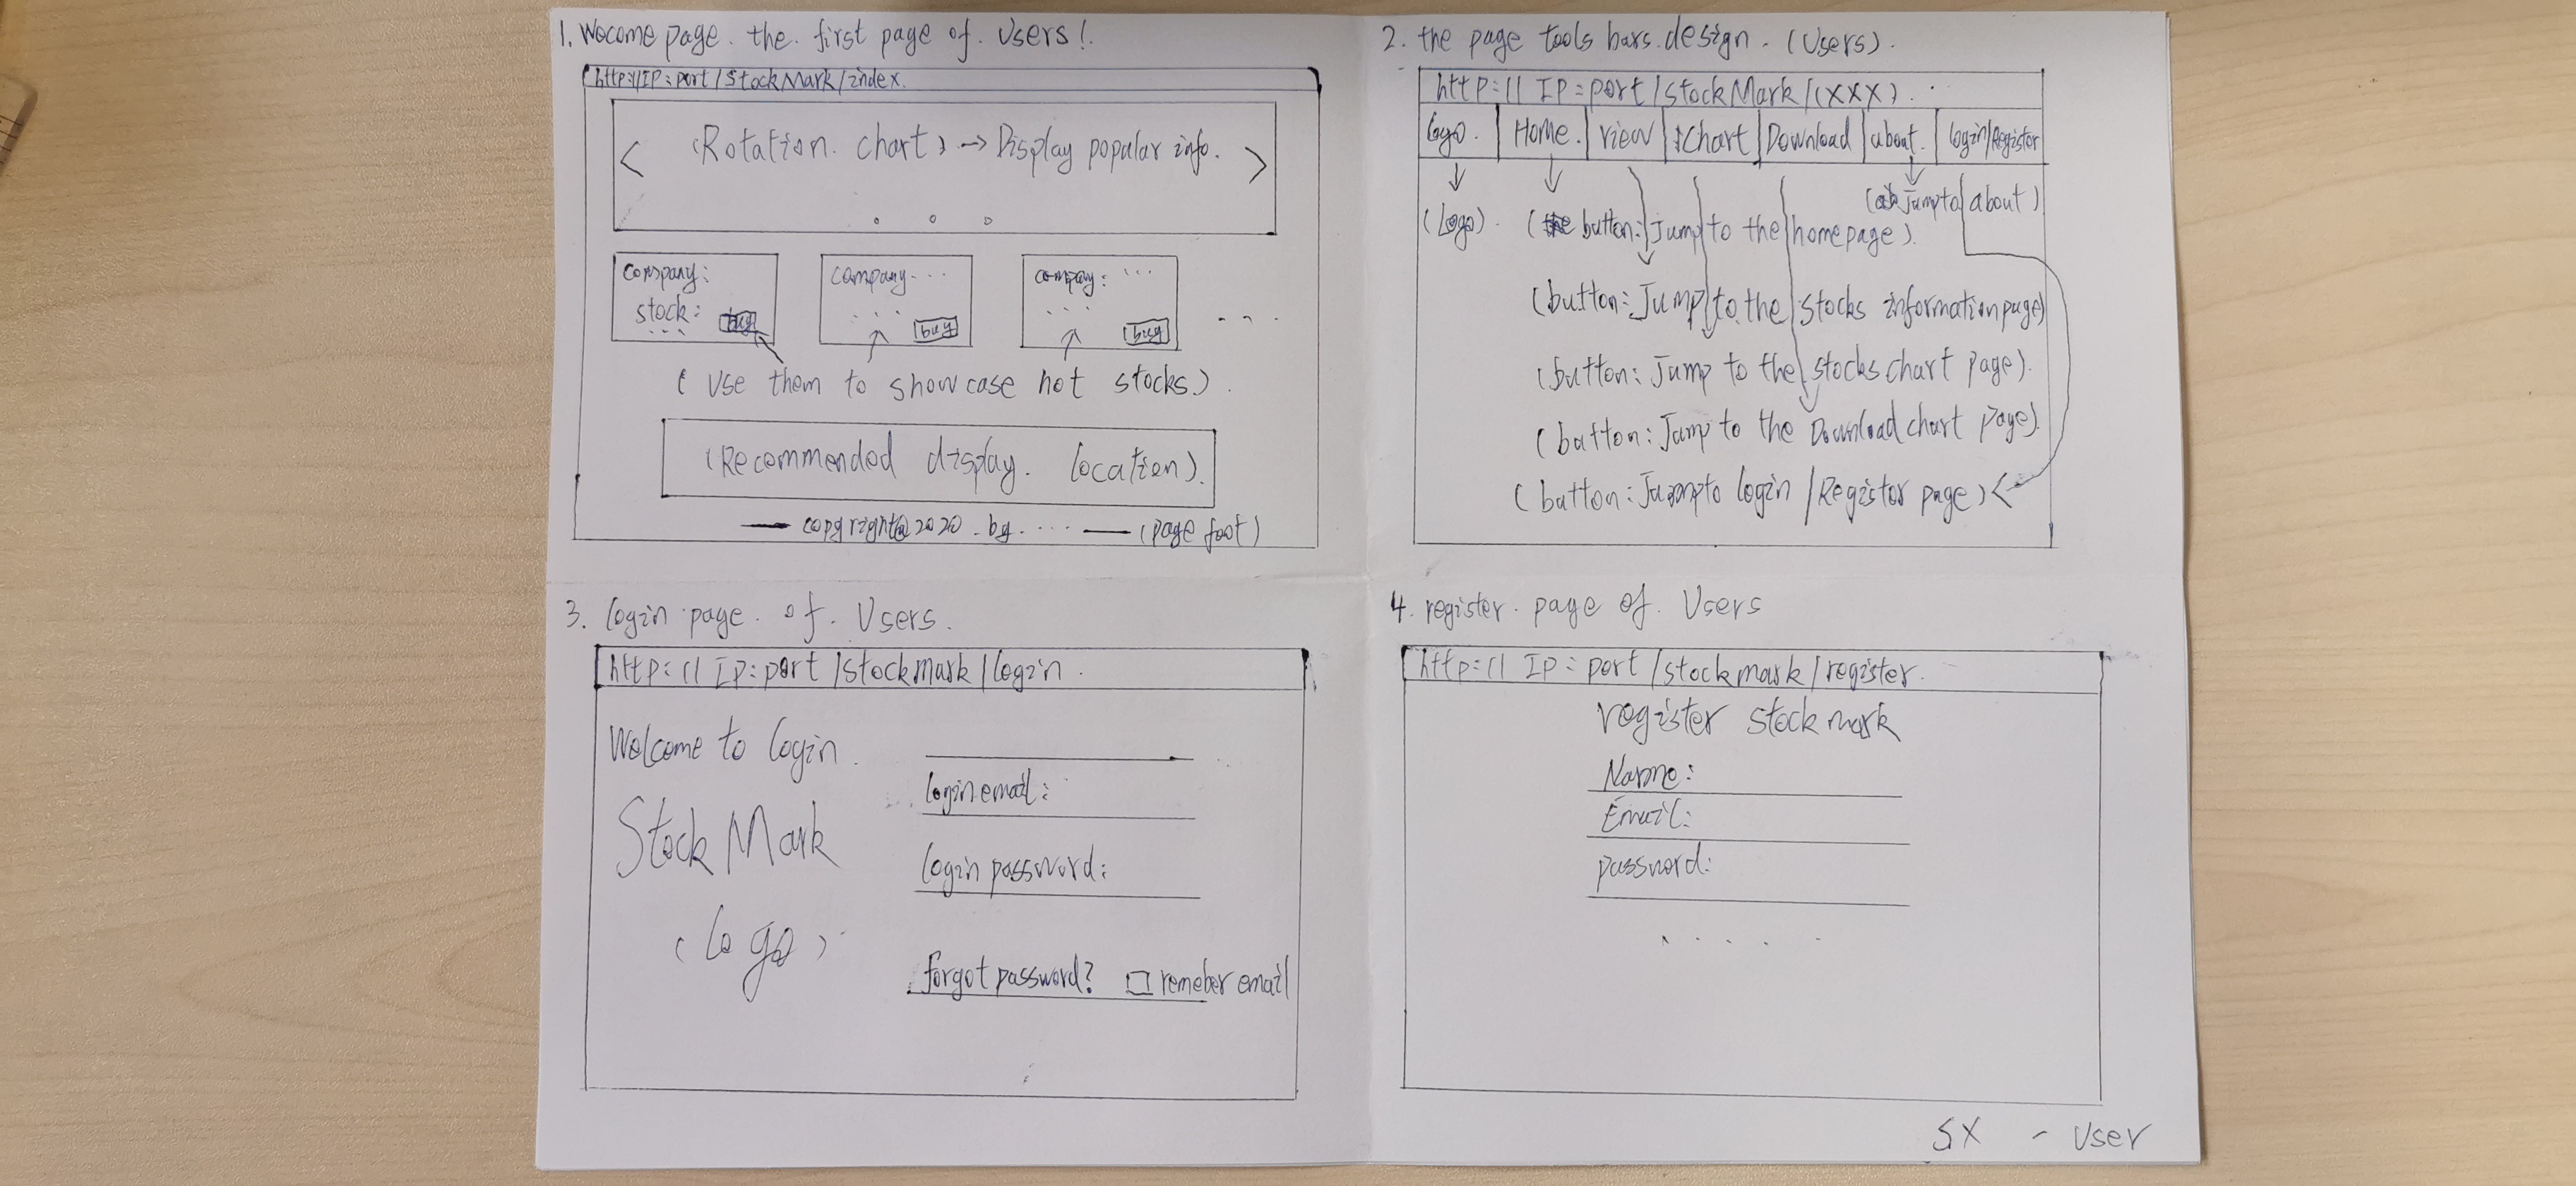 1. Wecome page. the. first page of. Users!.
http://IP:port/StockMark/index.
< (Rotation. chart) → Display popular info. >
company:
stock:
...
buy
company...
...
buy
company: ...
...
buy
...
( Use them to showcase hot stocks.).
(Recommended display. location).
— copyright@2020 . by. .... — (page foot)
2. the page tools bars.design. (Users).
http:// IP:port/stockMark/(XXX).
logo. Home. view $Chart Download about. login/Registor
(Logo). (button: Jump to the homepage).
(Jump to about)
(button: Jump to the stocks information page)
(button: Jump to the stocks chart page).
(button: Jump to the Download chart page).
(button: Jump to login /Registor page)
3. login page. of. Users.
http:// IP:port /stockmark/login.
Welcome to login.
Stock Mark
(logo)
login email:
login password:
forgot password? □ remeber email
4. register. page of. Users
http:// IP: port /stockmark/register.
register stock mark
Name:
Email:
password:
.....
SX - User